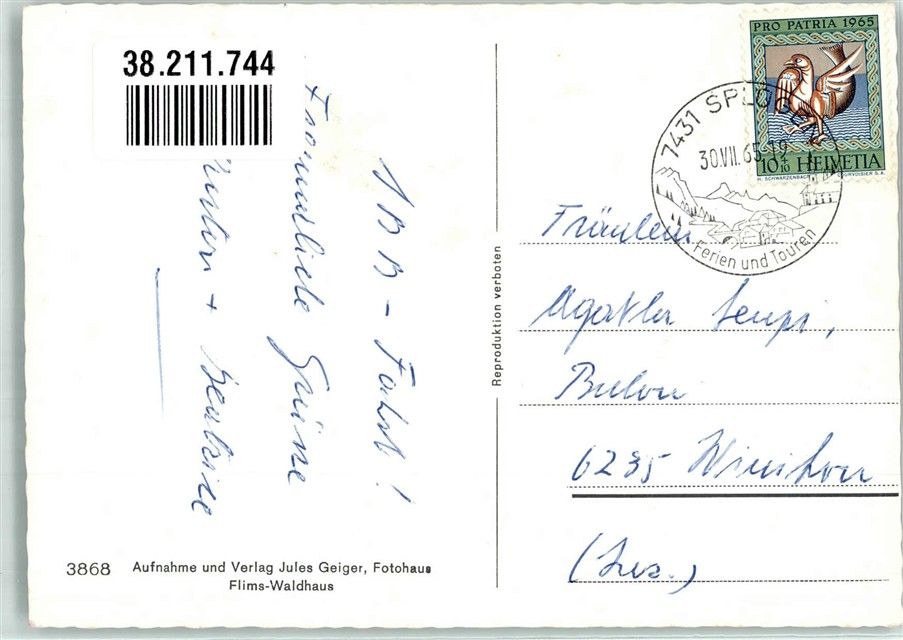 38.211.744
1BB-Fahrt!
Freundliche Grüsse
+
3868 Aufnahme und Verlag Jules Geiger, Fotohaus
Flims-Waldhaus
Reproduktion verboten
PRO PATRIA 1965
10+10 HELVETIA
H. SCHWARZENBACH COURVOISIER S.A.
7431 SPLÜGEN
30.VII.65-19
Ferien und Touren
Fräulein
Agatha
6235 Winikon
(Luz.)